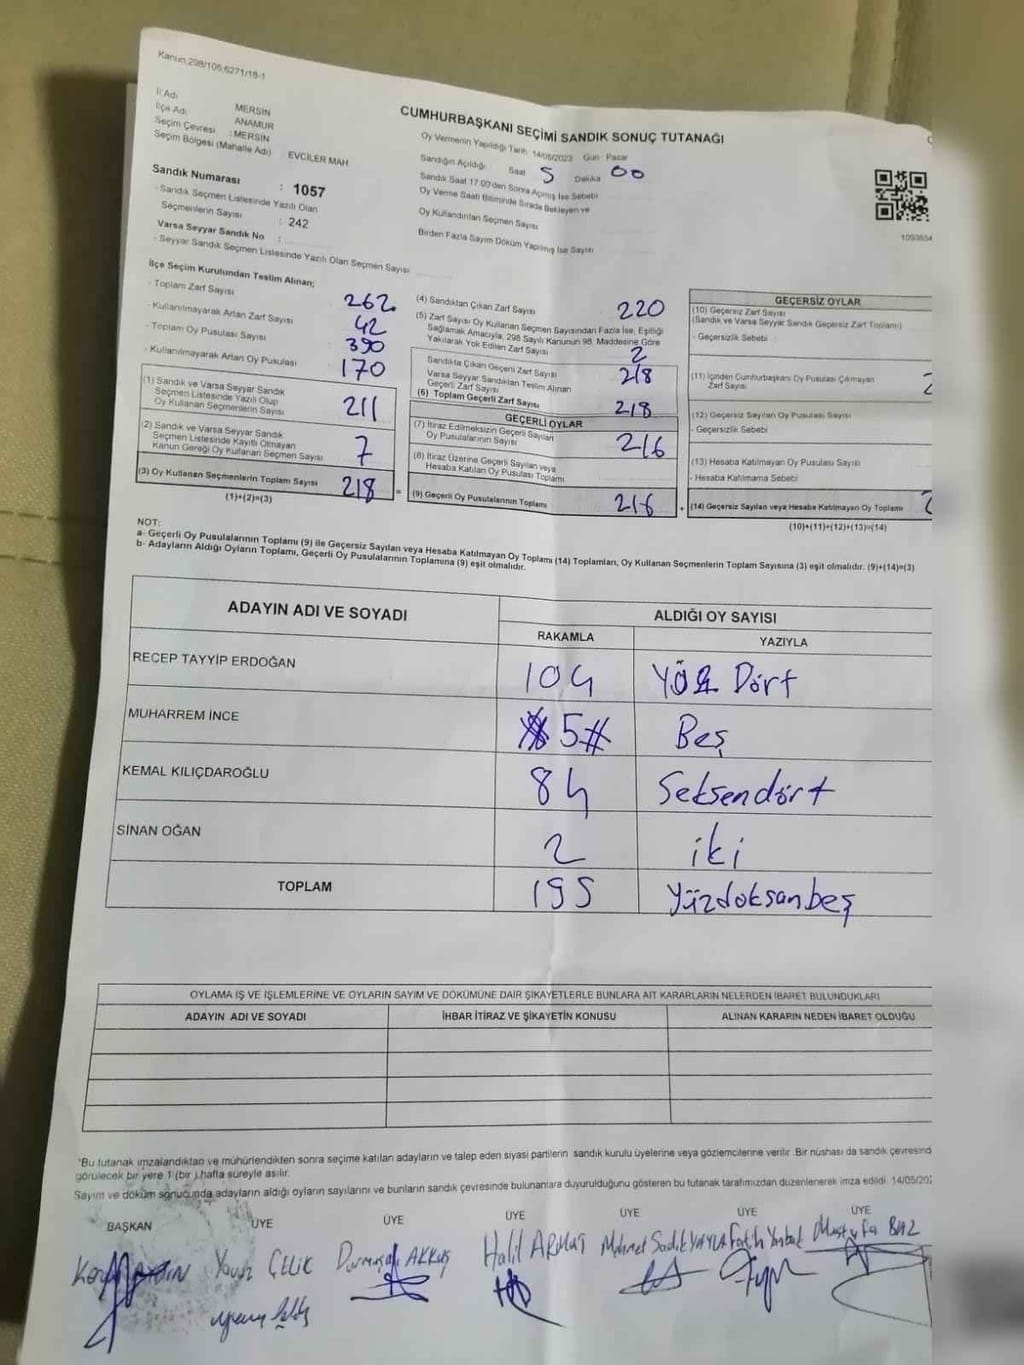 Kanun,298/105,6271/18-1
İl Adı MERSİN
İlçe Adı ANAMUR
Seçim Çevresi : MERSİN
Seçim Bölgesi (Mahalle Adı) : EVCİLER MAH
Sandık Numarası : 1057
- Sandık Seçmen Listesinde Yazılı Olan
Seçmenlerin Sayısı : 242
Varsa Seyyar Sandık No :
- Seyyar Sandık Seçmen Listesinde Yazılı Olan Seçmen Sayısı
CUMHURBAŞKANI SEÇİMİ SANDIK SONUÇ TUTANAĞI
Oy Vermenin Yapıldığı Tarih: 14/05/2023 Gün : Pazar
Sandığın Açıldığı Saat 5 Dakika 00
Sandık Saat 17:00'den Sonra Açılmış İse Sebebi
Oy Verme Saati Bitiminde Sırada Bekleyen ve
Oy Kullandırılan Seçmen Sayısı
Birden Fazla Sayım Döküm Yapılmış İse Sayısı
İlçe Seçim Kurulundan Teslim Alınan;
- Toplam Zarf Sayısı 262
- Kullanılmayarak Artan Zarf Sayısı 42
- Toplam Oy Pusulası Sayısı 390
- Kullanılmayarak Artan Oy Pusulası 170
(1) Sandık ve Varsa Seyyar Sandık
Seçmen Listesinde Yazılı Olup
Oy Kullanan Seçmenlerin Sayısı 211
(2) Sandık ve Varsa Seyyar Sandık
Seçmen Listesinde Kayıtlı Olmayan
Kanun Gereği Oy Kullanan Seçmen Sayısı 7
(3) Oy Kullanan Seçmenlerin Toplam Sayısı 218
(1)+(2)=(3)
(4) Sandıktan Çıkan Zarf Sayısı 220
(5) Zarf Sayısı Oy Kullanan Seçmen Sayısından Fazla İse, Eşitliği
Sağlamak Amacıyla, 298 Sayılı Kanunun 98. Maddesine Göre
Yakılarak Yok Edilen Zarf Sayısı 2
Sandıkta Çıkan Geçerli Zarf Sayısı 218
Varsa Seyyar Sandıktan Teslim Alınan
Geçerli Zarf Sayısı
(6) Toplam Geçerli Zarf Sayısı 218
GEÇERLİ OYLAR
(7) İtiraz Edilmeksizin Geçerli Sayılan
Oy Pusulalarının Sayısı 216
(8) İtiraz Üzerine Geçerli Sayılan veya
Hesaba Katılan Oy Pusulası Toplamı
(9) Geçerli Oy Pusulalarının Toplamı 216
GEÇERSİZ OYLAR
(10) Geçersiz Zarf Sayısı
(Sandık ve Varsa Seyyar Sandık Geçersiz Zarf Toplamı)
- Geçersizlik Sebebi
(11) İçinden Cumhurbaşkanı Oy Pusulası Çıkmayan
Zarf Sayısı 2
(12) Geçersiz Sayılan Oy Pusulası Sayısı
- Geçersizlik Sebebi
(13) Hesaba Katılmayan Oy Pusulası Sayısı
- Hesaba Katılmama Sebebi
(14) Geçersiz Sayılan veya Hesaba Katılmayan Oy Toplamı
(10)+(11)+(12)+(13)=(14)
NOT:
a- Geçerli Oy Pusulalarının Toplamı (9) ile Geçersiz Sayılan veya Hesaba Katılmayan Oy Toplamı (14) Toplamları, Oy Kullanan Seçmenlerin Toplam Sayısına (3) eşit olmalıdır. (9)+(14)=(3)
b- Adayların Aldığı Oyların Toplamı, Geçerli Oy Pusulalarının Toplamına (9) eşit olmalıdır.
ADAYIN ADI VE SOYADI ALDIĞI OY SAYISI
RAKAMLA YAZIYLA
RECEP TAYYİP ERDOĞAN 104 YÜZ Dört
MUHARREM İNCE 5# Beş
KEMAL KILIÇDAROĞLU 84 Seksendört
SİNAN OĞAN 2 iki
TOPLAM 195 Yüzdoksanbeş
OYLAMA İŞ VE İŞLEMLERİNE VE OYLARIN SAYIM VE DÖKÜMÜNE DAİR ŞİKAYETLERLE BUNLARA AİT KARARLARIN NELERDEN İBARET BULUNDUKLARI
ADAYIN ADI VE SOYADI İHBAR İTİRAZ VE ŞİKAYETİN KONUSU ALINAN KARARIN NEDEN İBARET OLDUĞU
*Bu tutanak imzalandıktan ve mühürlendikten sonra seçime katılan adayların ve talep eden siyasi partilerin sandık kurulu üyelerine veya gözlemcilerine verilir. Bir nüshası da sandık çevresind
görülecek bir yere 1 (bir) hafta süreyle asılır.
Sayım ve döküm sonucunda adayların aldığı oyların sayılarını ve bunların sandık çevresinde bulunanlara duyurulduğunu gösteren bu tutanak tarafımızdan düzenlenerek imza edildi. 14/05/202
BAŞKAN ÜYE ÜYE ÜYE ÜYE ÜYE ÜYE
AYDIN Yavuz ÇELİK Durmuşali AKKUŞ Halil Mehmet Sadık YAYLA Fatih Mustafa BAZ